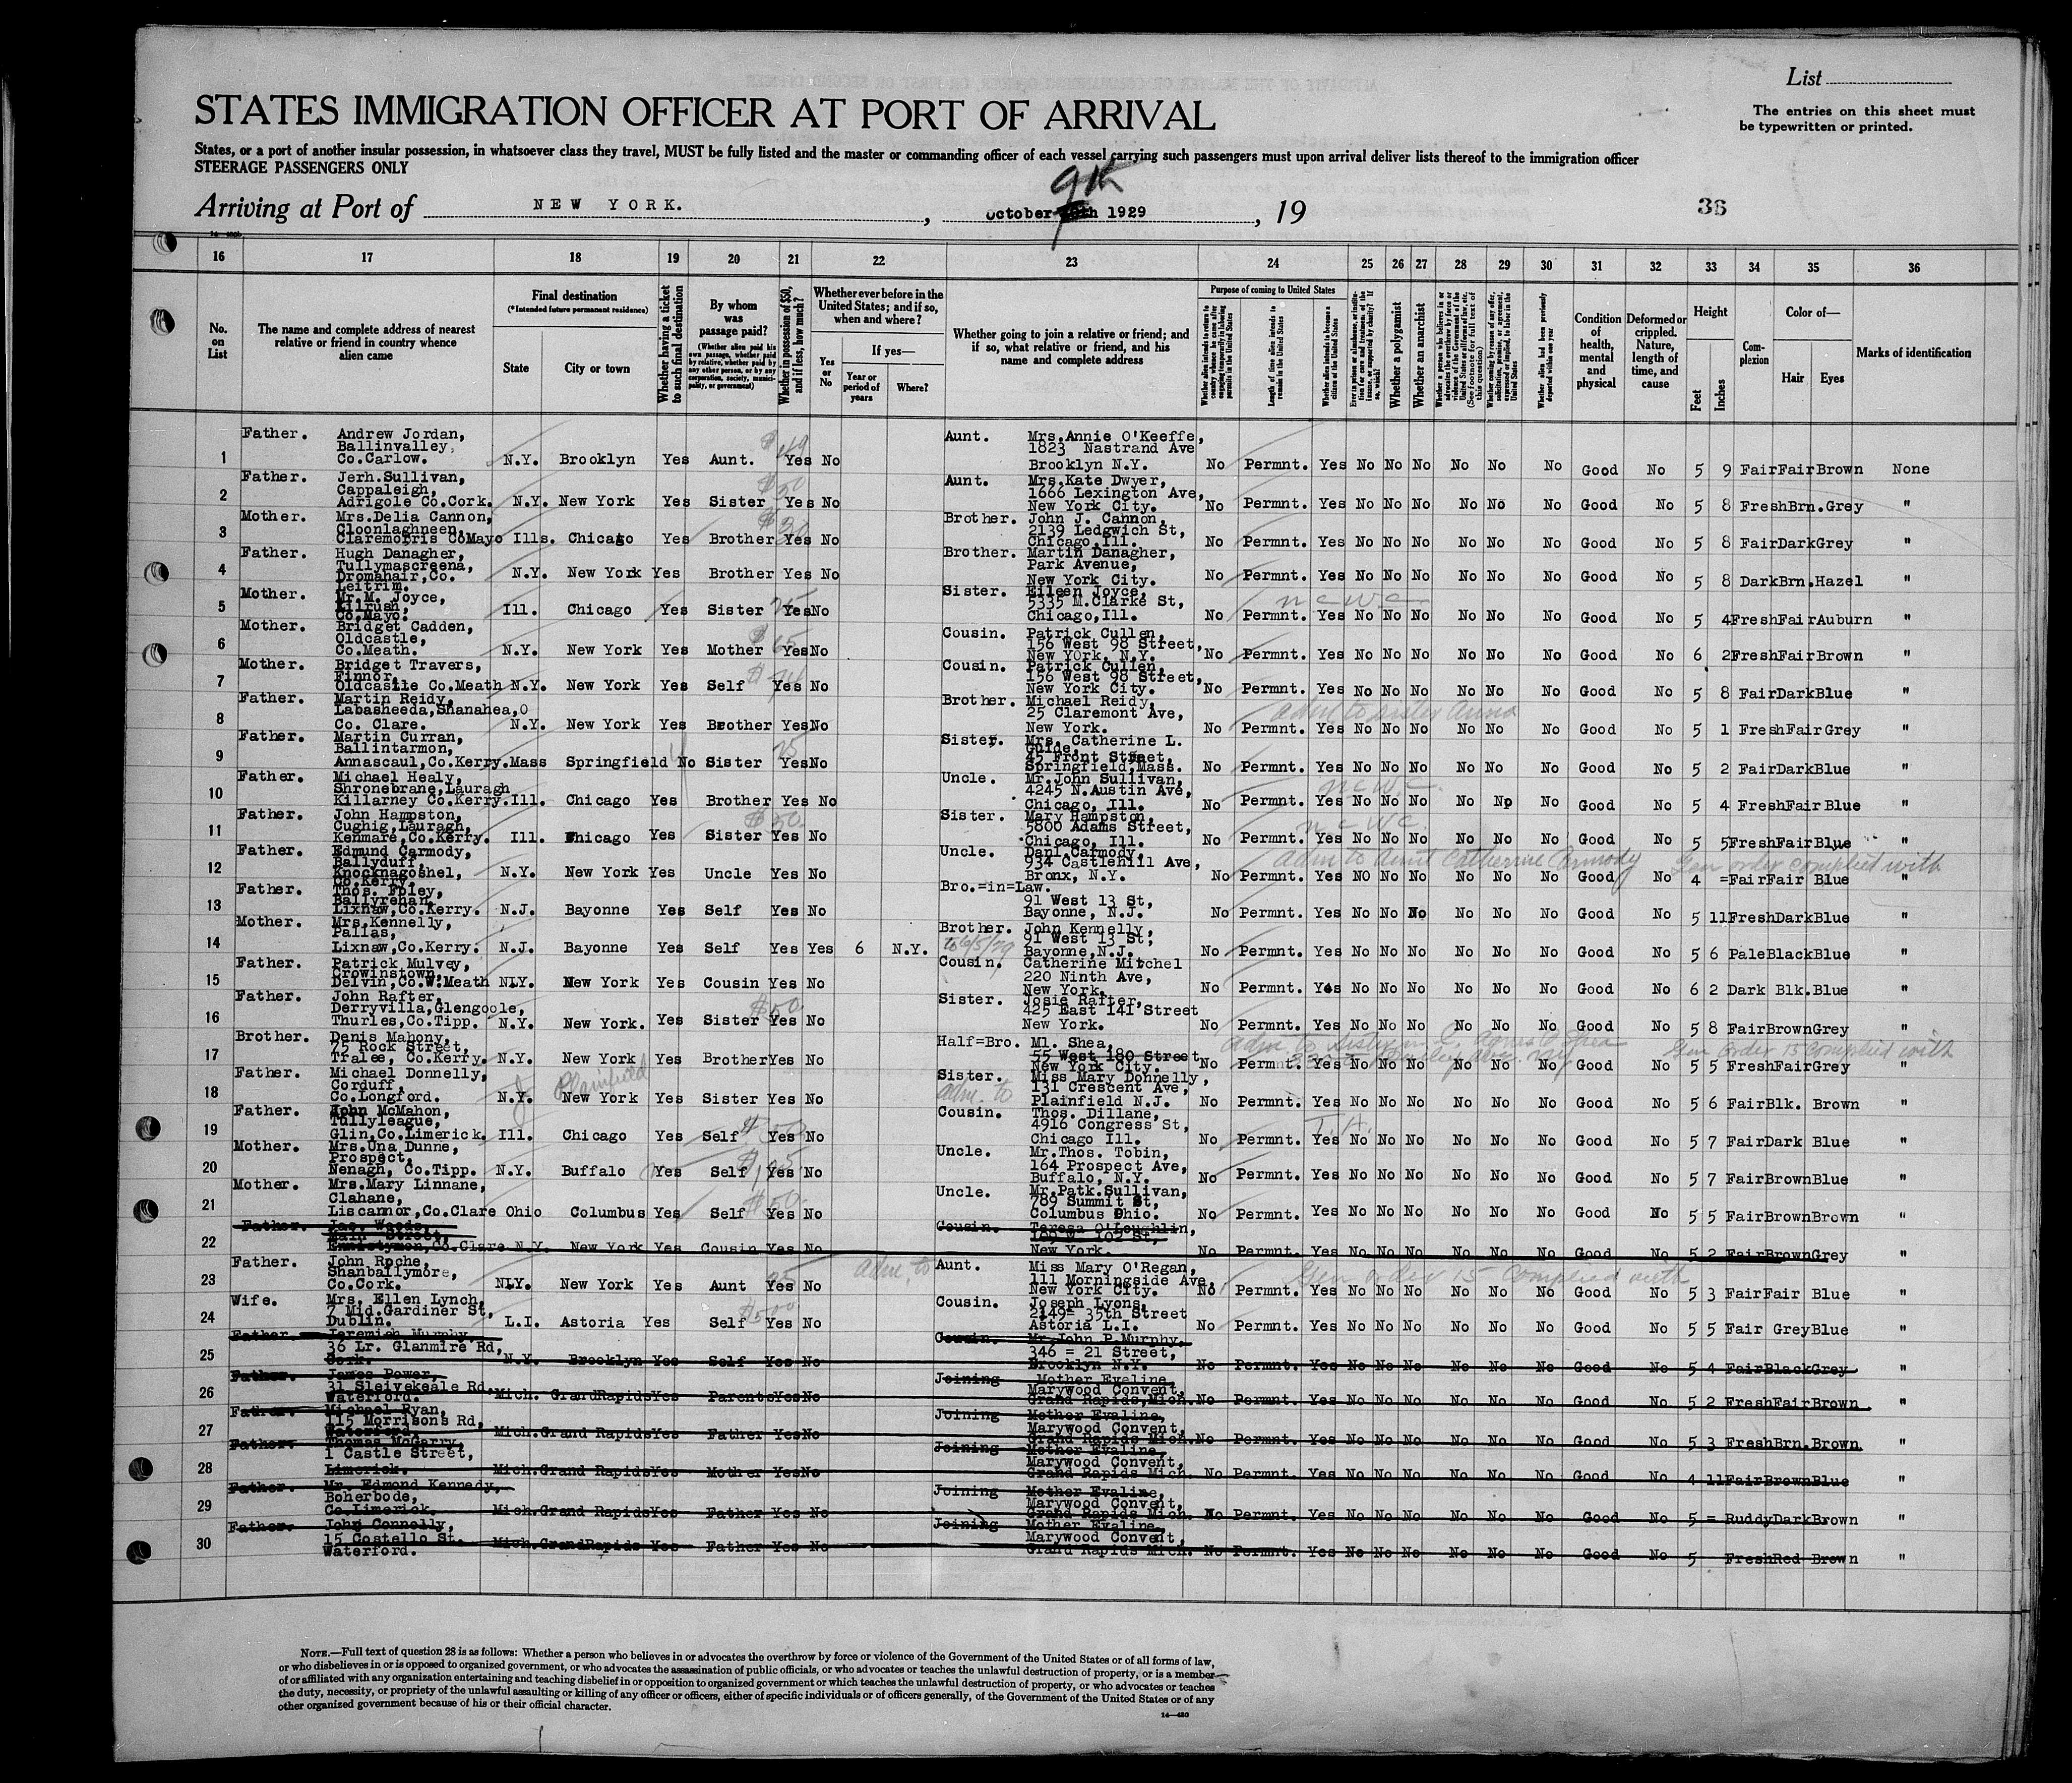 List
STATES IMMIGRATION OFFICER AT PORT OF ARRIVAL
The entries on this sheet must
be typewritten or printed.
States, or a port of another insular possession, in whatsoever class they travel, MUST be fully listed and the master or commanding officer of each vessel carrying such passengers must upon arrival deliver lists thereof to the immigration officer
STEERAGE PASSENGERS ONLY
9th
Arriving at Port of NEW YORK. , October 1929 , 19
36
16 17 18 19 20 21 22 23 24 25 26 27 28 29 30 31 32 33 34 35 36
No. on List
The name and complete address of nearest relative or friend in country whence alien came
Final destination
(*Intended future permanent residence)
State
City or town
Whether having a ticket to such final destination
By whom was passage paid?
(Whether alien paid his own passage, whether paid by relative, whether paid by any other person, or by any corporation, society, municipality, or government)
Whether in possession of $50, and if less, how much?
Whether ever before in the United States; and if so, when and where?
Yes or No
If yes—
Year or period of years
Where?
Whether going to join a relative or friend; and if so, what relative or friend, and his name and complete address
Purpose of coming to United States
Length of time alien intends to remain in the United States
Whether alien intends to become a citizen of the United States
Whether a polygamist
Whether an anarchist
Condition of health, mental and physical
Deformed or crippled. Nature, length of time, and cause
Height
Feet
Inches
Complexion
Color of—
Hair
Eyes
Marks of identification
1 Father. Andrew Jordan, Ballinvalley, Co.Carlow. N.Y. Brooklyn Yes Aunt. Yes No Aunt. Mrs.Annie O'Keeffe, 1823 Nastrand Ave Brooklyn N.Y. No Permnt. Yes No No No No No No Good No 5 9 Fair Fair Brown None
2 Father. Jerh.Sullivan, Cappaleigh, Adrigole Co.Cork. N.Y. New York Yes Sister Yes No Aunt. Mrs.Kate Dwyer, 1666 Lexington Ave, New York City. No Permnt. Yes No No No No No No Good No 5 8 Fresh Brn. Grey "
3 Mother. Mrs.Delia Cannon, Cloonlaghneen, Claremorris CoMayo Ills. Chicago Yes Brother Yes No Brother. John J. Cannon, 2139 Ledgwich St, Chicago,Ill. No Permnt. Yes No No No No No No Good No 5 8 Fair Dark Grey "
4 Father. Hugh Danagher, Tullymascreena, Dromahair,Co. Leitrim. N.Y. New York Yes Brother Yes No Brother. Martin Danagher, Park Avenue, New York City. No Permnt. Yes No No No No No No Good No 5 8 Dark Brn. Hazel "
5 Mother. Mr.M. Joyce, Kilrush, Co.Mayo. Ill. Chicago Yes Sister 25 Yes No Sister. Eileen Joyce, 5335 M.Clarke St, Chicago,Ill. No Permnt. Yes No No No No No No Good No 5 4 Fresh Fair Auburn "
6 Mother. Bridget Cadden, Oldcastle, Co.Meath. N.Y. New York Yes Mother Yes No Cousin. Patrick Cullen, 156 West 98 Street, New York. N.Y. No Permnt. Yes No No No No No No Good No 6 2 Fresh Fair Brown "
7 Mother. Bridget Travers, Finnor, Oldcastle Co.Meath N.Y. New York Yes Self Yes No Cousin. Patrick Cullen, 156 West 98 Street, New York City. No Permnt. Yes No No No No No No Good No 5 8 Fair Dark Blue "
8 Father. Martin Reidy, Labasheeda,Shanahea,O Co. Clare. N.Y. New York Yes Brother Yes No Brother. Michael Reidy, 25 Claremont Ave, New York. adm to sister Anna No Permnt. Yes No No No No No No Good No 5 1 Fresh Fair Grey "
9 Father. Martin Curran, Ballintarmon, Annascaul,Co.Kerry. Mass Springfield No Sister 25 Yes No Sister. Mrs. Catherine L. Guide, 45 Front Street, Springfield,Mass. No Permnt. Yes No No No No No No Good No 5 2 Fair Dark Blue "
10 Father. Michael Healy, Shronebrane,Lauragh Killarney Co.Kerry. Ill. Chicago Yes Brother Yes No Uncle. Mr.John Sullivan, 4245 N.Austin Ave, Chicago, Ill. No Permnt. Yes No No No No No No Good No 5 4 Fresh Fair Blue "
11 Father. John Hampston, Cughig,Lauragh, Kenmare,Co.Kerry. Ill. Chicago Yes Sister $50 Yes No Sister. Mary Hampston, 5800 Adams Street, Chicago, Ill. No Permnt. Yes No No No No No No Good No 5 5 Fresh Fair Blue "
12 Father. Edmund Carmody, Ballyduff, Knocknagoshel, Co.Kerry. N.Y. New York Yes Uncle Yes No Uncle. Danl Carmody, 934 Castlehill Ave, Bronx, N.Y. adm to aunt Catherine Carmody Gen order complied with No Permnt. Yes NO No No No No No Good No 4 = Fair Fair Blue "
13 Father. Thos. Foley, Ballyrehan, Lixnaw,Co.Kerry. N.J. Bayonne Yes Self Yes No Bro.=in=Law. 91 West 13 St, Bayonne, N.J. No Permnt. Yes No No No No No No Good No 5 11 Fresh Dark Blue "
14 Mother. Mrs.Kennelly, Pallas, Lixnaw,Co.Kerry. N.J. Bayonne Yes Self Yes Yes 6 N.Y. Brother. John Kennelly, 91 West 13 St, Bayonne,N.J. No Permnt. Yes No No No No No No Good No 5 6 Pale Black Blue "
15 Father. Patrick Mulvey, Crowinstown, Delvin,Co.W.Meath N.Y. New York Yes Cousin Yes No Cousin. Catherine Mitchel 220 Ninth Ave, New York. No Permnt. Yes No No No No No No Good No 6 2 Dark Blk. Blue "
16 Father. John Rafter, Derryvilla,Glengoole, Thurles,Co.Tipp. N.Y. New York. Yes Sister $50 Yes No Sister. Josie Rafter, 425 East 141 Street New York. No Permnt. Yes No No No No No No Good No 5 8 Fair Brown Grey "
17 Brother. Denis Mahony, 75 Rock Street, Tralee, Co.Kerry. N.Y. New York Yes Brother Yes No Half=Bro. Ml. Shea, 55 West 180 Street New York City. Gen Order 15 Complied with No Permnt. Yes No No No No No No Good No 5 5 Fresh Fair Grey "
18 Father. Michael Donnelly, Corduff, Co.Longford. N.Y. J Plainfield New York Yes Sister Yes No adm. to Sister. Miss Mary Donnelly, 131 Crescent Ave, Plainfield N.J. No Permnt. Yes No No No No No No Good No 5 6 Fair Blk. Brown "
19 Father. John McMahon, Tullyleague, Glin,Co.Limerick. Ill. Chicago Yes Self Yes No Cousin. Thos. Dillane, 4916 Congress St, Chicago Ill. No Permnt. Yes No No No No No No Good No 5 7 Fair Dark Blue "
20 Mother. Mrs.Una Dunne, Prospect, Nenagh, Co.Tipp. N.Y. Buffalo Yes Self Yes No Uncle. Mr.Thos. Tobin, 164 Prospect Ave, Buffalo, N.Y. No Permnt. Yes No No No No No No Good No 5 7 Fair Brown Blue "
21 Mother. Mrs.Mary Linnane, Clahane, Liscannor,Co.Clare Ohio Columbus Yes Self $50 Yes No Uncle. Mr.Patk.Sullivan, 789 Summit St, Columbus Ohio. No Permnt. Yes No No No No No No Good No 5 5 Fair Brown Brown "
22 Father. Jas. Woods, Main Street, Ennistymon,Co.Clare N.Y. New York Yes Cousin Yes No Cousin. Teresa O'Loughlin, 189 W. 102 St, New York. No Permnt. Yes No No No No No No Good No 5 2 Fair Brown Grey "
23 Father. John Roche, Shanballymore, Co.Cork. N.Y. New York Yes Aunt 25 Yes No adm. to Aunt. Miss Mary O'Regan, 111 Morningside Ave, New York City. Gen order 15 Complied with No Permnt. Yes No No No No No No Good No 5 3 Fair Fair Blue "
24 Wife. Mrs. Ellen Lynch, 7 Mid.Gardiner St, Dublin. L.I. Astoria Yes Self Yes No Cousin. Joseph Lyons, 2149= 35th Street Astoria L.I. No Permnt. Yes No No No No No No Good No 5 5 Fair Grey Blue "
25 Father. Jeremiah Murphy, 36 Lr. Glanmire Rd, Cork. N.Y. Brooklyn Yes Self Yes No Cousin. Mr John P Murphy, 346 = 21 Street, Brooklyn N.Y. No Permnt. Yes No No No No No No Good No 5 4 Fair Black Grey "
26 Father. James Power, 31 Sleivekeale Rd, Waterford. Mich. GrandRapids Yes Parents Yes No Joining Mother Eveline, Marywood Convent, Grand Rapids,Mich. No Permnt. Yes No No No No No No Good No 5 2 Fresh Fair Brown "
27 Father. Michael Ryan, 115 Morrisons Rd, Waterford. Mich. Grand Rapids Yes Father Yes No Joining Mother Evaline, Marywood Convent, Grand Rapids Mich. No Permnt. Yes No No No No No No Good No 5 3 Fresh Brn. Brown. "
28 Father. Thomas McGarry, 1 Castle Street, Limerick. Mich. Grand Rapids Yes Mother Yes No Joining Mother Evaline, Marywood Convent, Grand Rapids Mich. No Permnt. Yes No No No No No No Good No 4 11 Fair Brown Blue "
29 Father. Mr. Edmond Kennedy, Boherbode, Co.Limerick. Mich. Grand Rapids Yes Father Yes No Joining Mother Evaline, Marywood Convent, Grand Rapids Mich. No Permnt. Yes No No No No No No Good No 5 = Ruddy Dark Brown "
30 Father. John Connolly, 15 Costello St. Waterford. Mich. GrandRapids Yes Father Yes No Joining Mother Evaline, Marywood Convent, Grand Rapids Mich. No Permnt. Yes No No No No No No Good No 5 Fresh Red Brown "
NOTE.—Full text of question 28 is as follows: Whether a person who believes in or advocates the overthrow by force or violence of the Government of the United States or of all forms of law,
or who disbelieves in or is opposed to organized government, or who advocates the assassination of public officials, or who advocates or teaches the unlawful destruction of property, or is a member
of or affiliated with any organization entertaining and teaching disbelief in or opposition to organized government or which teaches the unlawful destruction of property, or who advocates or teaches
the duty, necessity, or propriety of the unlawful assaulting or killing of any officer or officers, either of specific individuals or of officers generally, of the Government of the United States or of any
other organized government because of his or their official character.
14—430